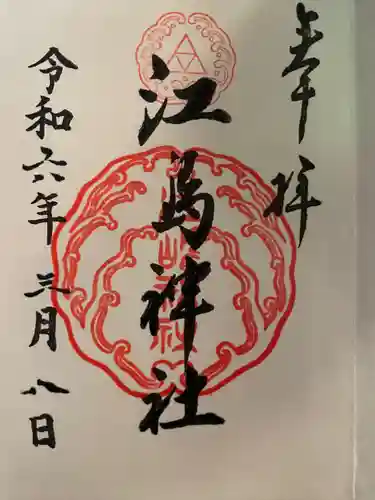 奉拝
江島神社
令和六年三月八日